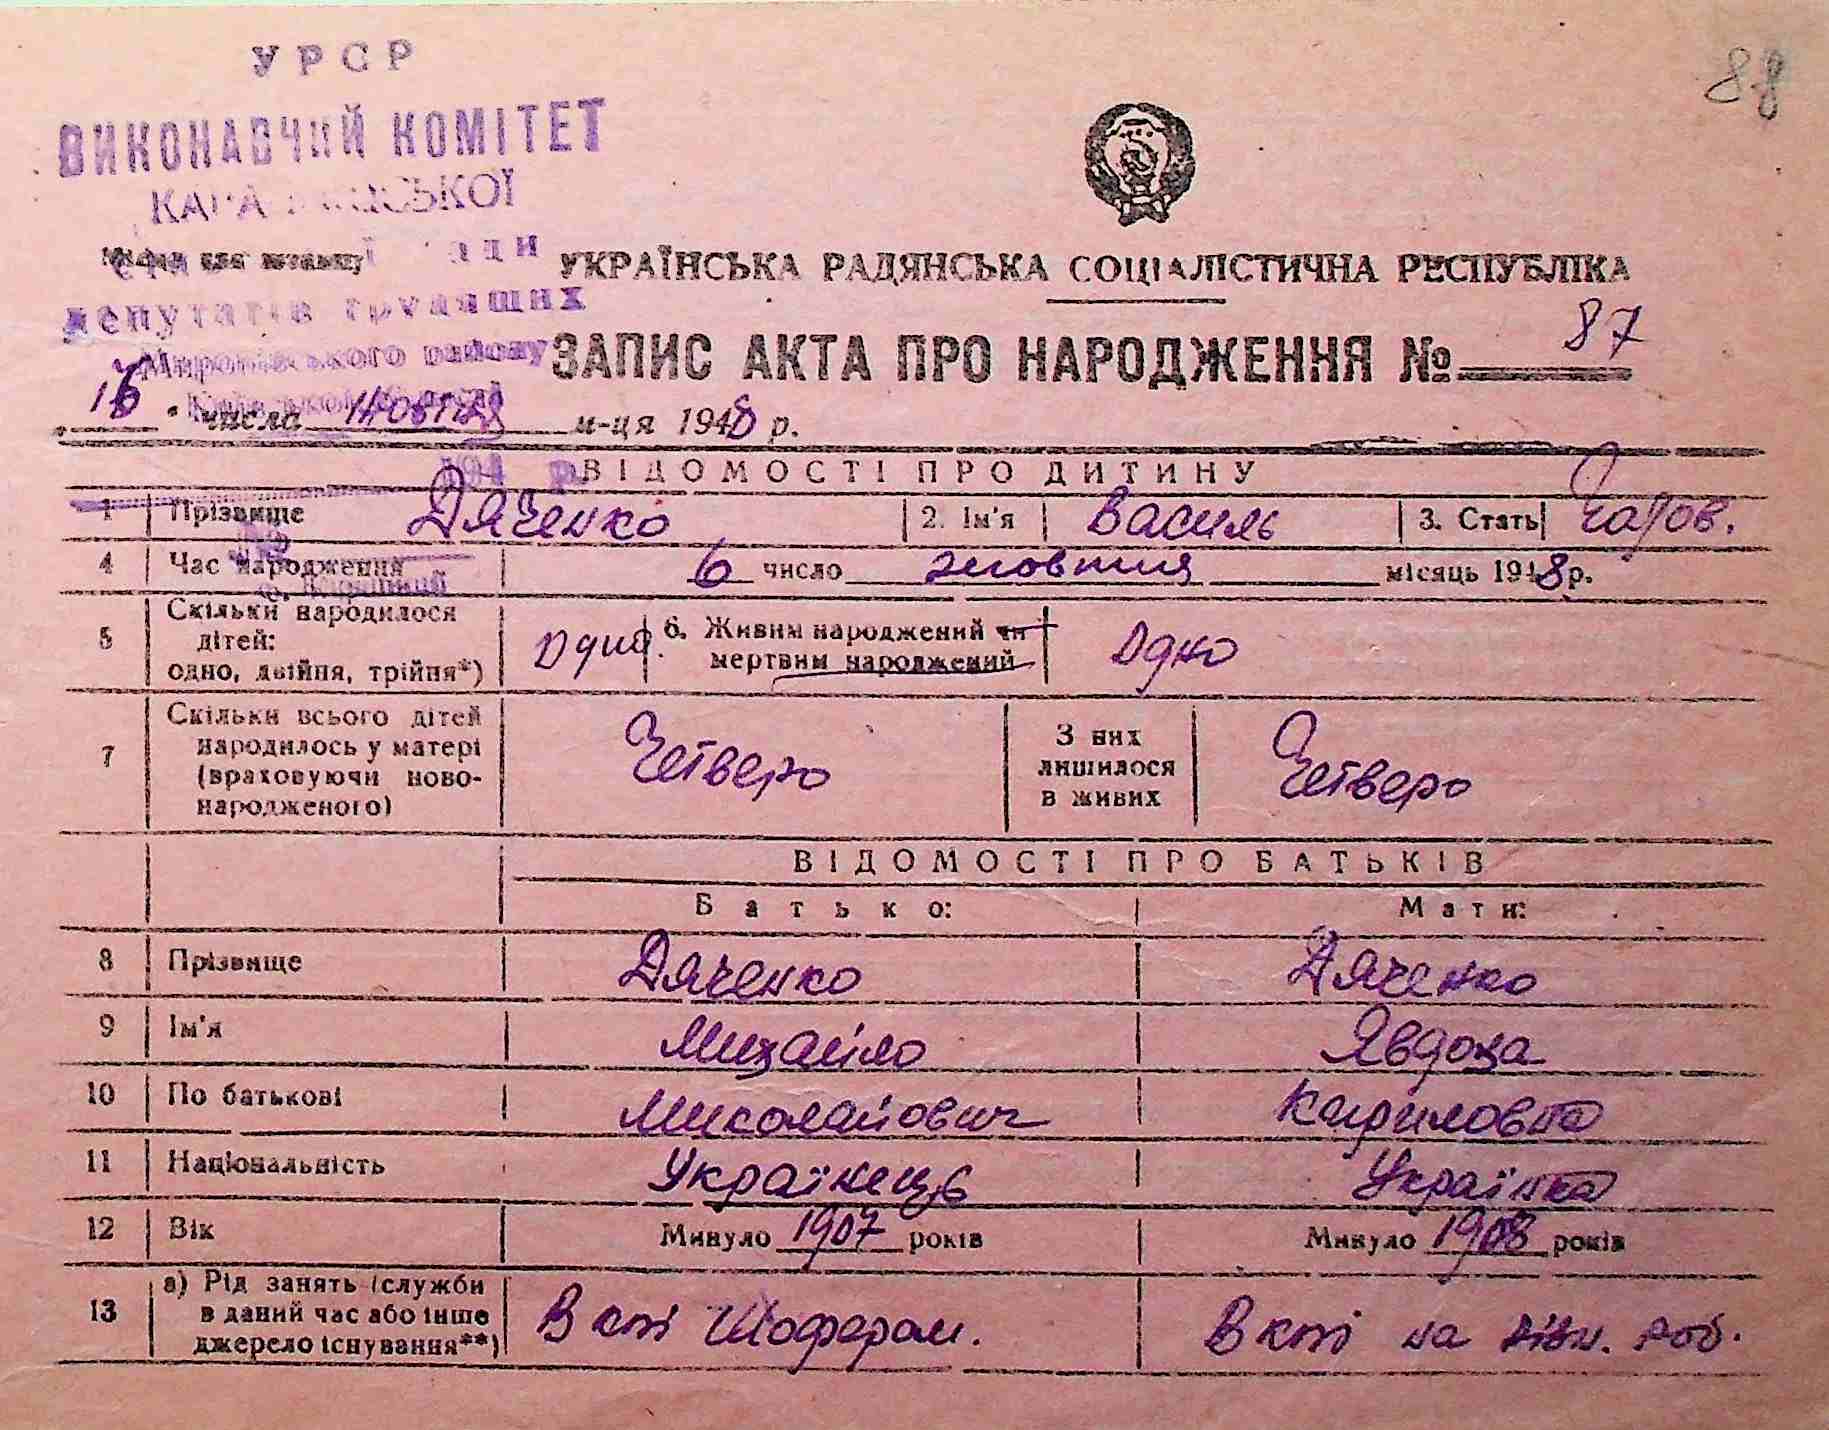 88
УРСР
ВИКОНАВЧИЙ КОМІТЕТ
УКРАЇНСЬКА РАДЯНСЬКА СОЦІАЛІСТИЧНА РЕСПУБЛІКА
депутатів трудящих
Миронівського району
ЗАПИС АКТА ПРО НАРОДЖЕННЯ № 87
16 числа жовтня м-ця 1948 р.
194 р.
ВІДОМОСТІ ПРО ДИТИНУ
1 Прізвище Дяченко 2. Ім'я Василь 3. Стать Чолов.
4 Час народження 6 число жовтня місяць 1948 р.
5 Скільки народилося дітей: одно, двійня, трійня*) Одно. 6. Живим народжений чи мертвим народжений Одно
7 Скільки всього дітей народилось у матері (враховуючи ново-народженого) Четверо З них лишилося в живих Четверо
ВІДОМОСТІ ПРО БАТЬКІВ
Батько: Мати:
8 Прізвище Дяченко Дяченко
9 Ім'я Михайло Явдоха
10 По батькові Миколайович Кириловна
11 Національність Українець Українка
12 Вік Минуло 1907 років Минуло 1908 років
13 а) Рід занять (служби в даний час або інше джерело існування**) В кті Шофером. В кті на різн. роб.